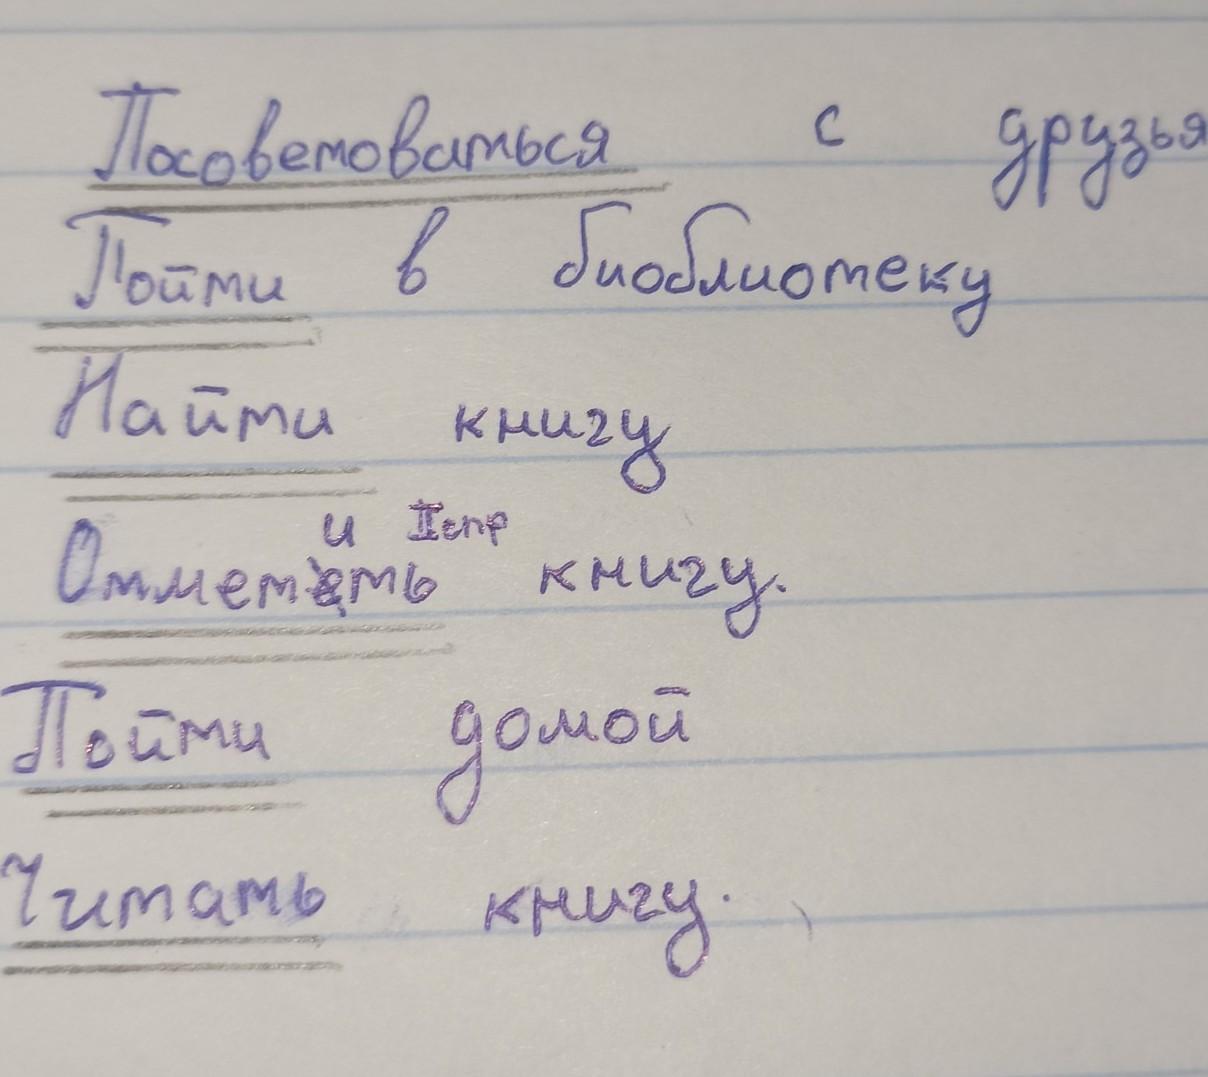 Посоветоваться с друзья
Пойти в биоблиотеку
Найти книгу
и II спр
Отмететь книгу.
Пойти домой
Читать книгу.